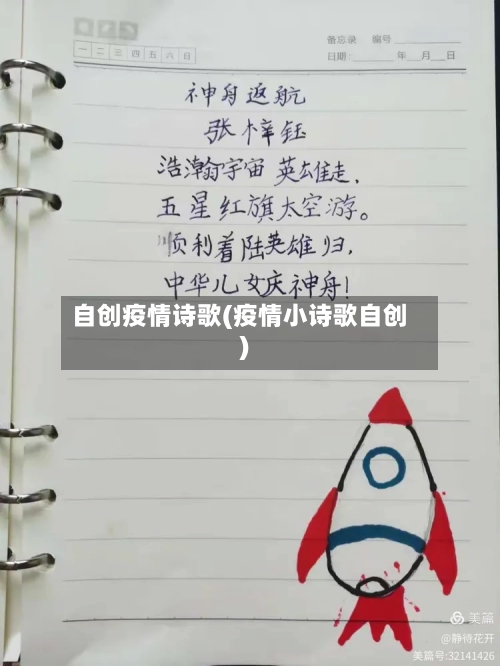 备忘录 编号
一 二 三 四 五 六 日
日期: 年 月 日
神舟返航
张梓钰
浩瀚宇宙英雄走,
五星红旗太空游。
顺利着陆英雄归,
中华儿女庆神舟!
自创疫情诗歌(疫情小诗歌自创
)
美篇
@静待花开
美篇号:32141426